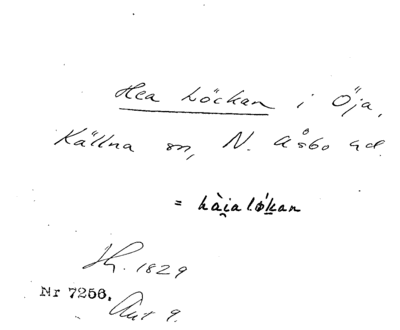 Hea Löckan i Öja,
Källna sn, N. Åsbo hd.
= hài̯alǿkan
Sk. 1829
Nr 7256.
Ant 9.